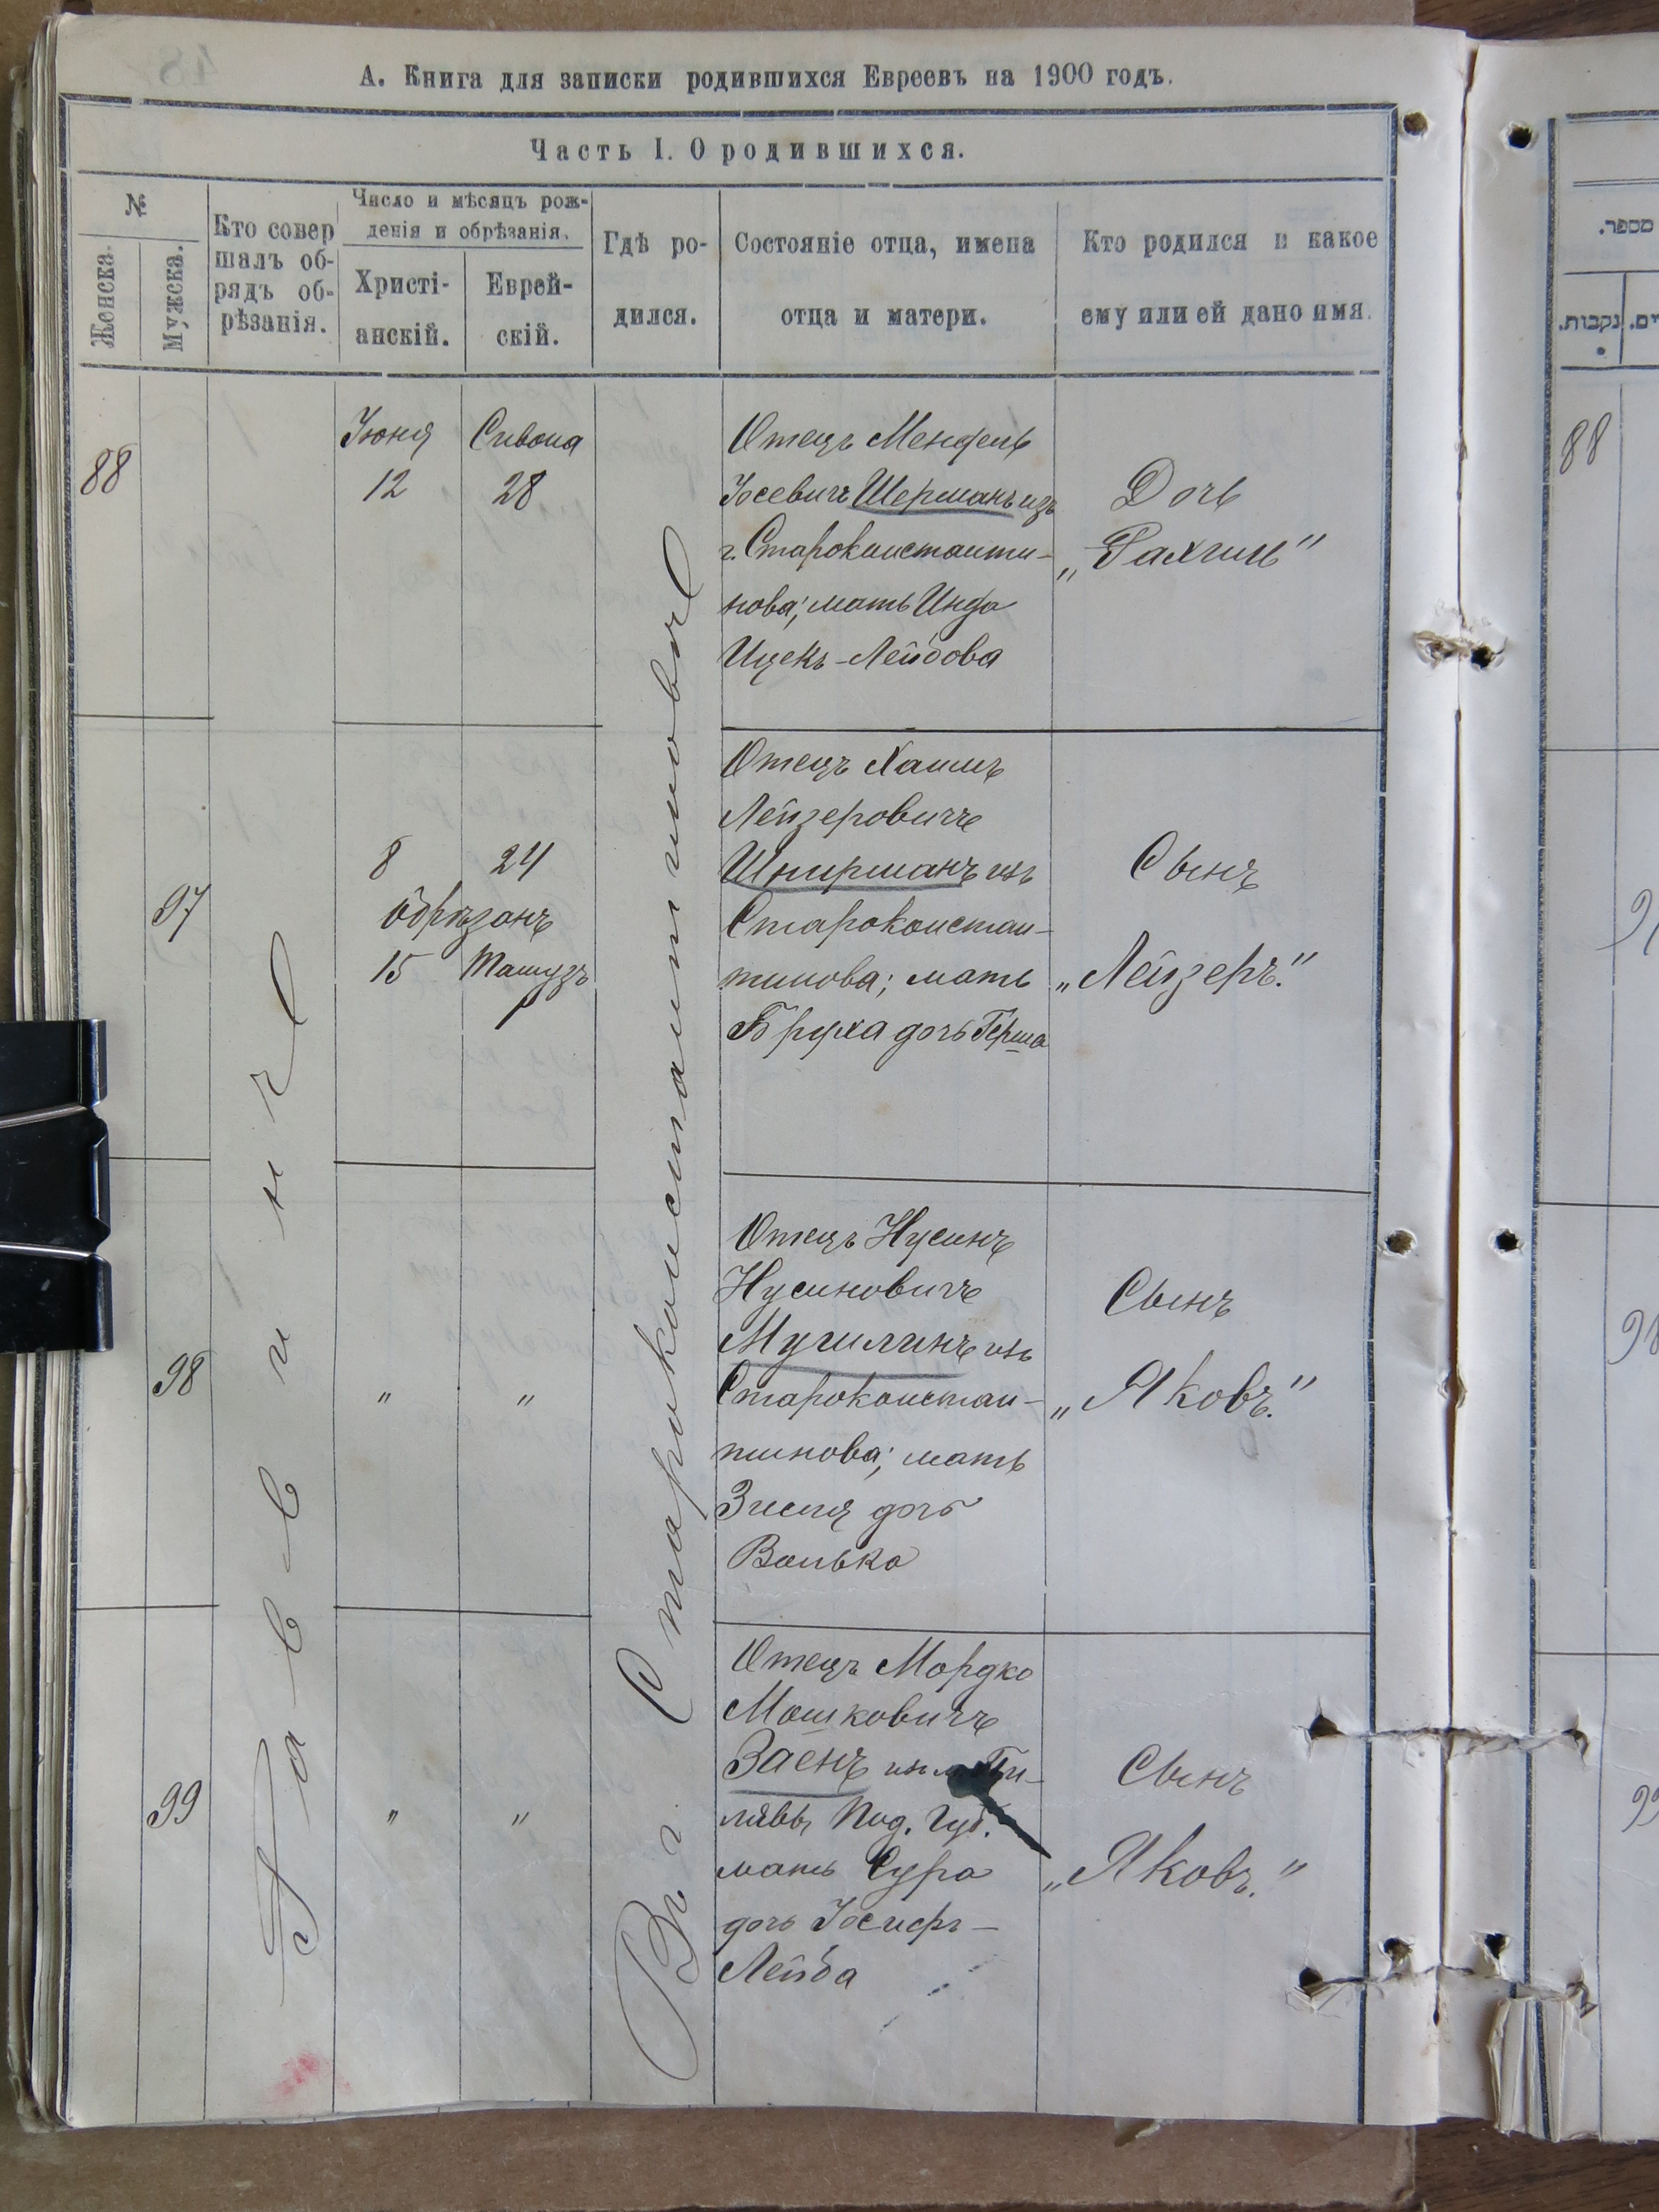 А. Книга для записки родившихся Евреевъ на 1900 годъ.
Часть I. О родившихся.
№
Женска.
Мужска.
Кто совер
шалъ об-
рядъ об-
рѣзанія.
Число и мѣсяцъ рож-
денія и обрѣзанія.
Христі-
анскій.
Еврей-
скій.
Гдѣ ро-
дился.
Состояніе отца, имена
отца и матери.
Кто родился и какое
ему или ей дано имя.
מספר.
נקבות.
Раввинъ
Въ г. Староконстантиновѣ
88
Іюня
12
Сивона
28
Отецъ Мендель
Іосевичъ Шерманъ изъ
г. Староконстанти-
нова; мать Инда
Ицекъ-Лейбова
Дочь
„Рахиль"
88
97
8
24
Обрѣзанъ
15 Тамузъ
Отецъ Хаимъ
Лейзеровичъ
Шнирманъ изъ
Староконстан-
тинова; мать
Бруха дочь Герша
Сынъ
„Лейзеръ."
98
„
„
Отецъ Нусинъ
Нусиновичъ
изъ
Староконстан-
тинова; мать
Зисля дочь
Волька
Сынъ
„Яковъ."
98
99
„
„
Отецъ Мордко
Мошковичъ
Заенъ изъ
лявы Под. Губ.
мать Сура
дочь Іосифъ-
Лейба
Сынъ
„Яковъ."
99